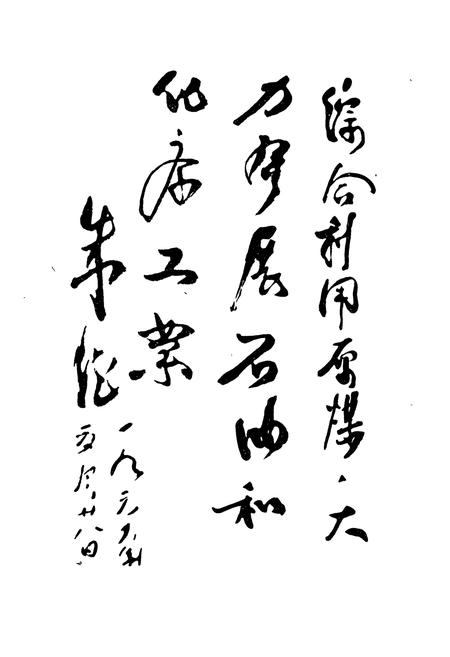 综合利用原煤、大
力发展石油和
化学工業
朱德
一九六年
五月廿八日